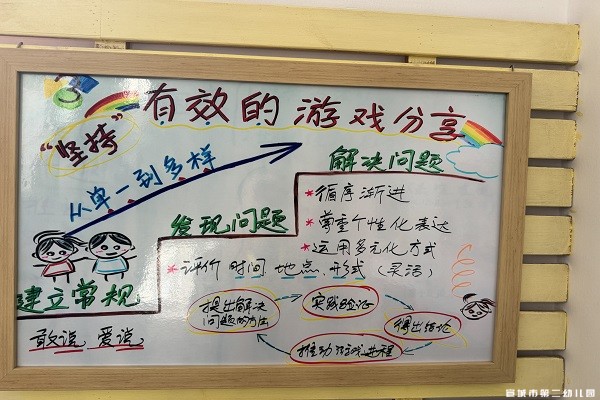 有效的游戏分享
“坚持”
从单一到多样
解决问题
*循序渐进
*尊重个性化表达
*运用多元化方式
发现问题
*评价 时间 地点 形式（灵活）
建立常规
敢说 爱说
提出解决
问题的方法
实践验证
得出结论
推动游戏进程
宣城市第二幼儿园